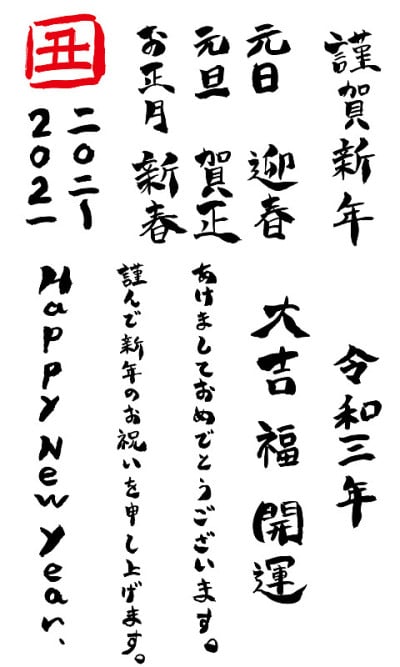 謹賀新年
元日
迎春
元旦
賀正
お正月
新春
丑
二〇二一
202一
令和三年
大吉
福
開運
あけましておめでとうございます。
謹んで新年のお祝いを申し上げます。
Happy New Year.